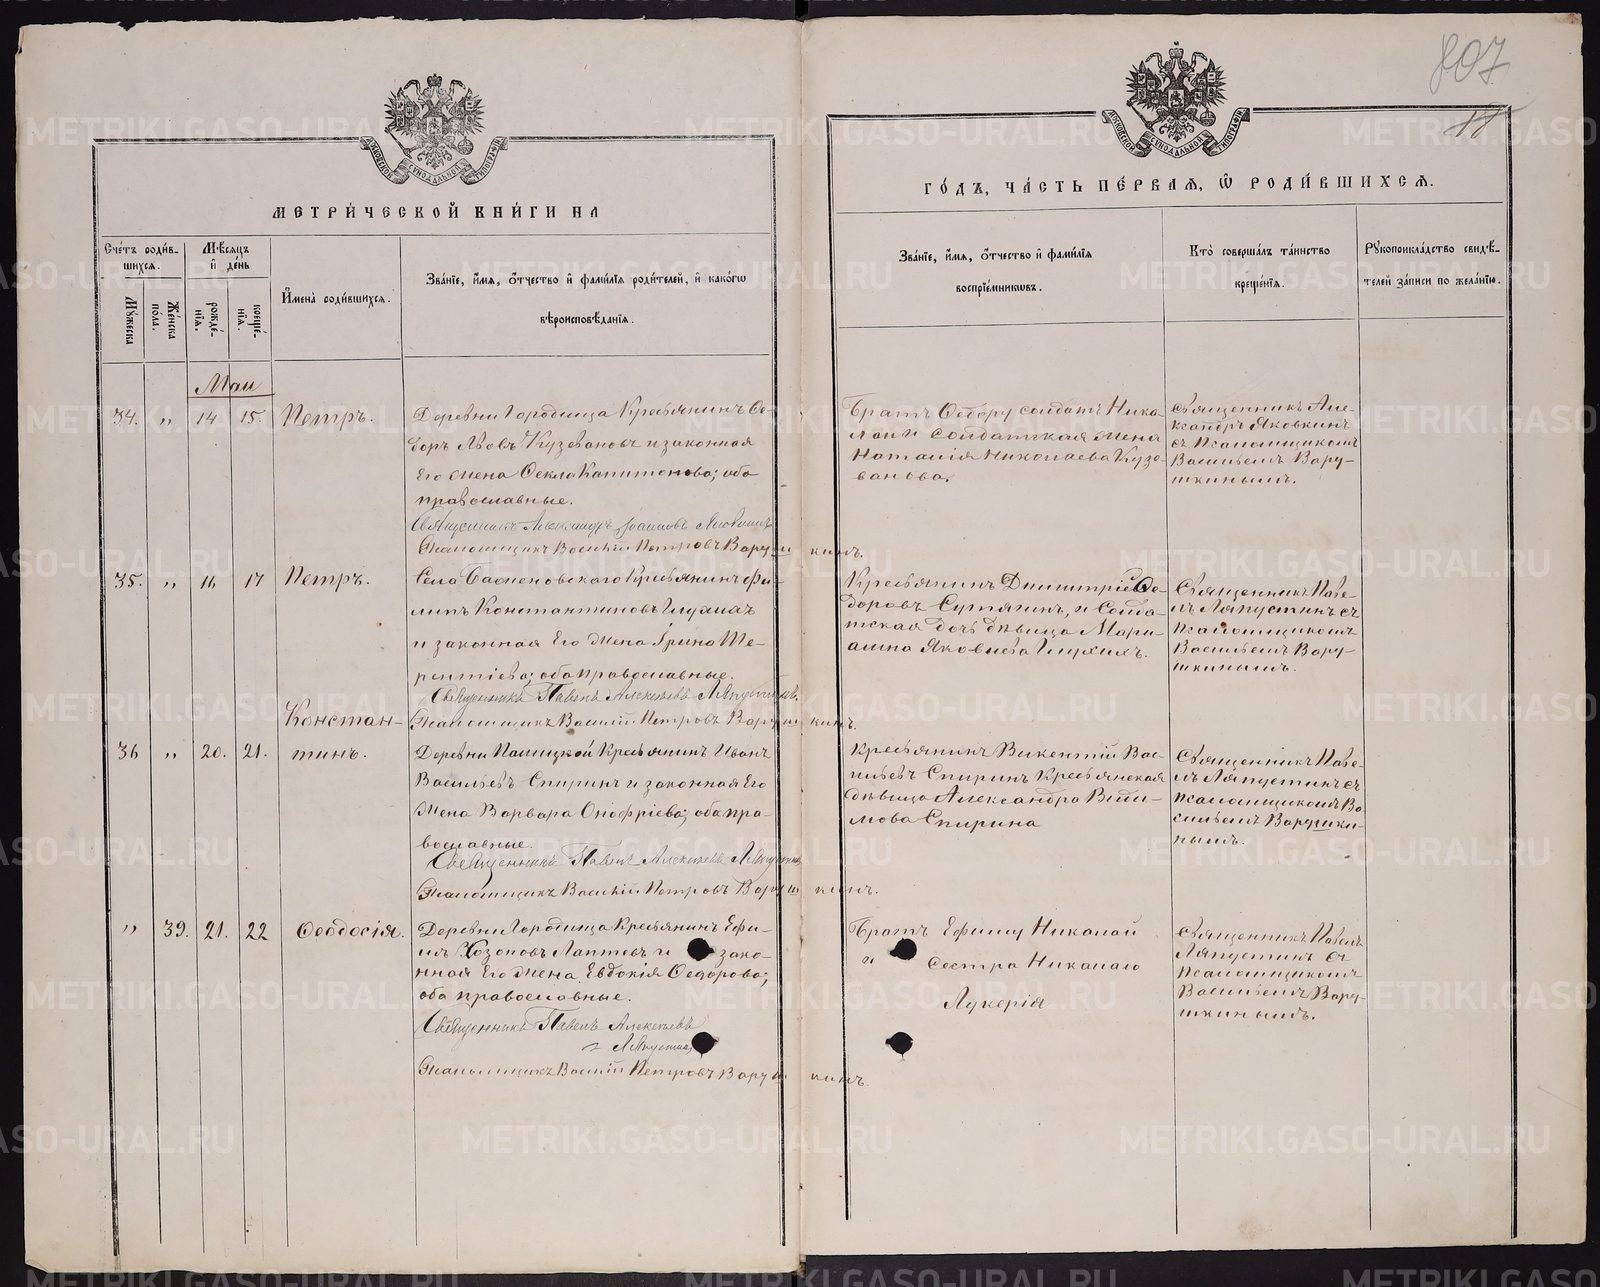 807
18
МЕТРИ́ЧЕСКОЙ КНИ́ГИ НА
ГО́ДЪ, ЧА́СТЬ ПЕ́РВАЯ, Ѿ РОДИ́ВШИХСЯ.
Сче́тъ роди́в-
шихся.
Мꙋжеска
Же́нска
по́ла.
Мѣ́сяцъ
и҆ де́нь
рожде́-
нїя.
креще́-
нїя.
И҆мена̀ роди́вшихся.
Зва́нїе, и҆́мя, ѻ҆́тчество и҆ фами́лїя роди́телей, и҆ како́гѡ
вѣроисповѣ́данїя.
Зва́нїе, и҆́мя, ѻ҆́тчество и҆ фами́лїя
воспрїе́мникѡвъ.
Кто̀ соверша́лъ та́инство
креще́нїя.
Рꙋкоприкла́дство свидѣ́-
телей за́писи по жела́нїю.
Маи
34. „ 14 15. Петръ.
Деревни Городища Крестьянинъ Ѳе-
доръ Львовъ Кузевановъ и законная
Его жена Ѳекла Капитонова; оба
православные.
Священникъ Александръ Яковкинъ
Псаломщикъ Василій Петровъ Варушкинъ.
Братъ Ѳедору солдатъ Нико-
лай и солдатская жена
Наталія Николаева Кузе-
ванова.
Священникъ Але-
ксандръ Яковкинъ
съ Псаломщикомъ
Васильемъ Вару-
шкинымъ.
35. „ 16 17 Петръ.
Села Крестьянинъ Фи-
липъ Константиновъ
и законная Его жена Ірина Те-
рентіева; оба православные.
Священникъ Павелъ Алексѣевъ Ляпустинъ
Псаломщикъ Василій Петровъ Варушкинъ.
Крестьянинъ Димитрій Ѳе-
доровъ Сутягинъ, и Солда-
тская дочь дѣвица Мари-
амна Яковлева
Священникъ Паве-
лъ Ляпустинъ съ
Псаломщикомъ
Васильемъ Вару-
шкинымъ.
36 „ 20. 21. Констан-
тинъ.
Деревни Крестьянинъ Иванъ
Васильевъ Спиринъ и законная Его
жена Варвара Онофріева; оба пра-
вославные.
Священникъ Павелъ Алексѣевъ Ляпустинъ
Псаломщикъ Василій Петровъ Варушкинъ.
Крестьянинъ Викентій Вас-
ильевъ Спиринъ Крестьянская
дѣвица Александра
Спирина
Священникъ Паве-
лъ Ляпустинъ съ
Псаломщикомъ Ва-
сильемъ Варушки-
нымъ.
„ 39. 21. 22 Ѳеодосія.
Деревни Городища Крестьянинъ Ефи-
мъ Лаптевъ и зако-
нная Его жена Евдокія Ѳедорова;
оба православные.
Священникъ Павелъ Алексѣевъ
Ляпустинъ
Псаломщикъ Василій Петровъ Варушкинъ.
Братъ Ефиму Николай
и сестра Николаю
Лукерія
Священникъ Павелъ
Ляпустинъ съ
Псаломщикомъ
Васильемъ Вару-
шкинымъ.
METRIKI.GASO-URAL.RU